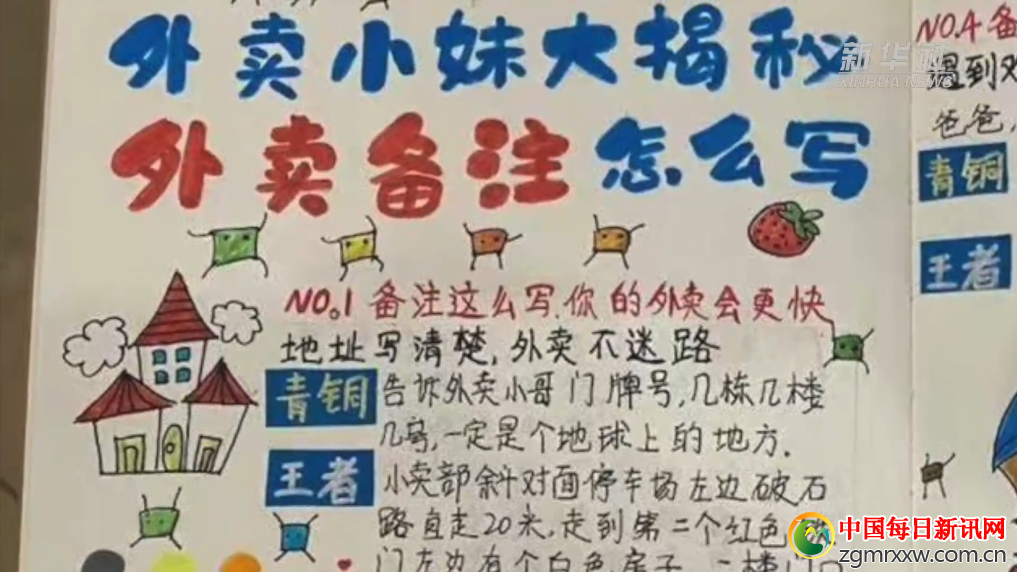 外卖小妹大揭秘
外卖备注怎么写
NO.1备注这么写,你的外卖会更快
地址写清楚,外卖不迷路
青铜 告诉外卖小哥门牌号,几栋几楼
几室,一定是个地球上的地方.
王者 小卖部斜对面停车场左边破石
路直走20米,走到第二个红色
门左边有个白色房子,一楼门口
NO.4备
遇到对
爸爸,
青铜
王者
新华社
XINHUA NEWS
中国每日新讯网
zgmrxxw.com.cn